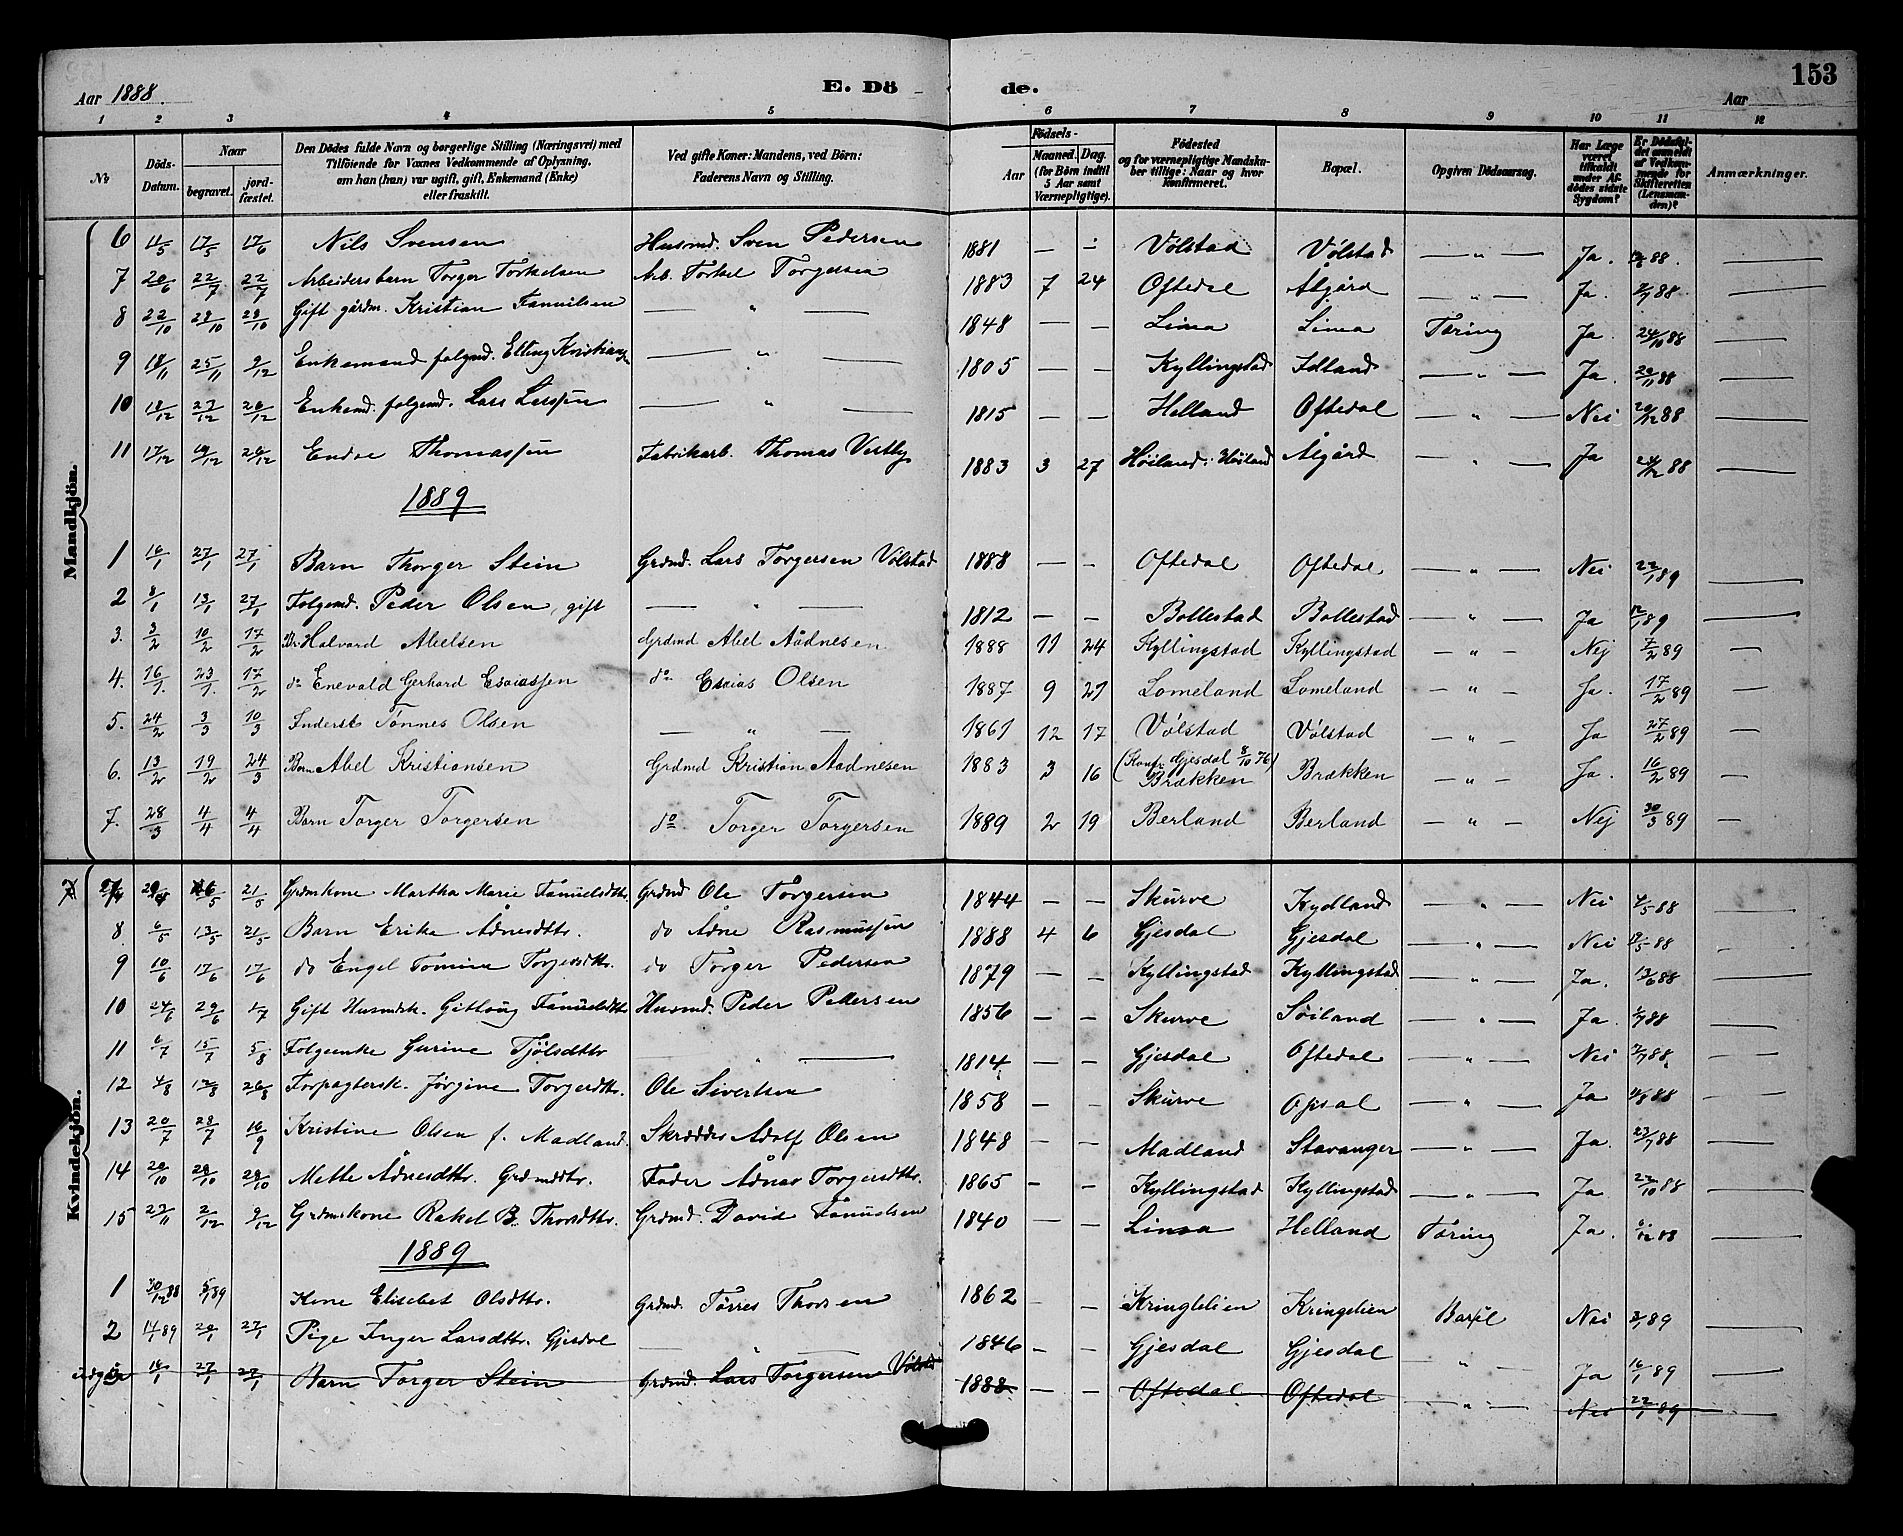 153
Aar 1888.
E. Dö de.
Aar
1 2 3 4 5 6 7 8 9 10 11 12
No
Döds-Datum.
Naar
begravet.
jord-fæstet.
Den Dödes fulde Navn og borgerlige Stilling (Næringsvei) med
Tilföiende for Voxnes Vedkommende af Oplysning,
om han (hun) var ugift, gift, Enkemand (Enke)
eller fraskilt.
Ved gifte Koner: Mandens, ved Börn:
Faderens Navn og Stilling.
Födsels-
Aar
Maaned. Dag.
(for Börn indtil
5 Aar samt
Værnepligtige).
Födested
og for værnepligtige Mandska-
ber tillige: Naar og hvor
konfirmeret.
Bopæl.
Opgiven Dödsaarsag.
Har Læge
været
tilkaldt
under Af-
dödes sidste
Sygdom?
Er Dödsfal-
det anmeldt
af Vedkom-
mende for
Skifteretten
(Lensman-
den)?
Anmærkninger.
Mandkjön.
6 11/5 17/5 17/6 Nils Svensen Husmd. Sven Pedersen 1881 — — Vølstad Vølstad — " — Ja. 88. —
7 20/6 22/7 22/7 Arbeidersbarn Torger Torkelsen Arb. Torkel Torgersen 1883 7 24 Oftedal Ålgård — " — Ja. 2/7 88 —
8 22/10 28/10 28/10 Gift gårdm. Kristian Fanuilsen — " — 1848 — — Lima Lima Tæring Ja. 24/10 88 —
9 18/11 25/11 9/12 Enkemand folgmd. Elling Kristiansen — " — 1805 — — Kyllingstad Idland — " — Ja. 20/11 88 —
10 18/12 27/12 26/12 Enkemd. folgemd. Lars Larssen — " — 1815 — — Helland Oftedal — " — Nei 20/12 88 —
11 17/12 19/12 26/12 Endre Thomassen Fabrikarb. Thomas 1883 3 27 Høiland i Høiland Ålgård — " — Ja 24/12 88 —
1889
1 16/1 27/1 27/1 Barn Thorger Stein Grdmd. Lars Torgersen Vølstad 1888 — — Oftedal Oftedal — " — Nei 22/1 89 —
2 8/1 13/1 27/1 Folgemd. Peder Olsen, gift — " — 1812 — — Bollestad Bollestad — " — Ja 12/1 89 —
3. 3/2 10/2 17/2 Bn Halvard Abelsen Grdmd Abel Aadnesen 1888 11 24 Kyllingstad Kyllingstad — " — Nej 7/2 89 —
4. 16/1. 23/1. 17/2 do Enevald Gerhard Esaiassen do Esaias Olsen 1887 9 27 Lomeland Lomeland — " — Ja. 17/2 89 —
5. 24/2 3/3 10/3 Inderst Tønnes Olsen — " — 1861 12 17 Vølstad Vølstad — " — Ja 27/2 89 —
(Konf. Gjesdal 8/10 76)
6. 13/2 19/2 24/3 Barn Abel Kristiansen Grdmd Kristian Aadnesen 1883 3 16 Brækken Brækken — " — Ja. 16/2 89 —
7. 28/3 4/4 4/4 Barn Torger Torgersen do Torger Torgersen 1889 2 19 Berland Berland — " — Nej 30/3 89 —
Kvindekjön.
7 6/5 21/5 Grdmskone Martha Marie Fanuelsdttr. Grdmd Ole Torgersen 1844 — — Skurve Kydland — " — Nei 4/5 88 —
8 6/5 13/5 21/5 Barn Erika Ådnesdttr. do Ådne Rasmussen 1888 4 6 Gjesdal Gjesdal — " — Nei 88 —
9 10/6 17/6 17/6 do Engel Tomine Torjersdttr. do Torger Pedersen 1879 — — Kyllingstad Kyllingstad — " — Ja. 13/6 88 —
10 24/6 29/6 1/7 Gift Husmdsk. Gittoug Fanuelsdttr Husmd. Peder Pedersen 1856 — — Skurve Søiland — " — Ja. 88 —
11 6/7 15/7 5/8 Folgeenke Gurine Tjølsdttr — " — 1814 — — Gjesdal Oftedal — " — Nei 7/7 88 —
12 4/8 12/8 26/8 Forpagtersk. Jørgine Torgersdttr. Ole Sivertsen 1858 — — Skurve Opsal — " — Ja 88 —
13 20/7 28/7 16/9 Kristine Olsen f. Madland. Skrædder Adolf Olsen 1848 — — Madland Stavanger — " — Ja. 23/7 88 —
14 20/10 28/10 28/10 Mette Ådnesdttr. Grdmdttr. Fader Ådne Torgersdttr. 1865 — — Kyllingstad Kyllingstad — " — Ja 22/10 88 —
15 27/11 2/12 9/12 Grdmskone Rakel B. Thorsdttr. Grdmd. David Fanuelsen 1840 — — Limsa Helland Tæring Ja. 6/12 88 —
1889
1 30/12 88 5/1 89 Kone Elisebet Olsdttr. Grdmd. Tørres Thorsen 1862 — — Kringlelien Kringelien Barsel Nei 2/1 89 —
2 14/1 89 20/1 27/1 Pige Inger Larsdttr. Gjesdal — " — 1846 — — Gjesdal Gjesdal — " — Ja 16/1 89 —
udgår 16/1 27/1 27/1 Barn Torger Stein Grdmd. Lars Torgersen Vølstad 1888 — — Oftedal Oftedal — " — Nei 22/1 89 —